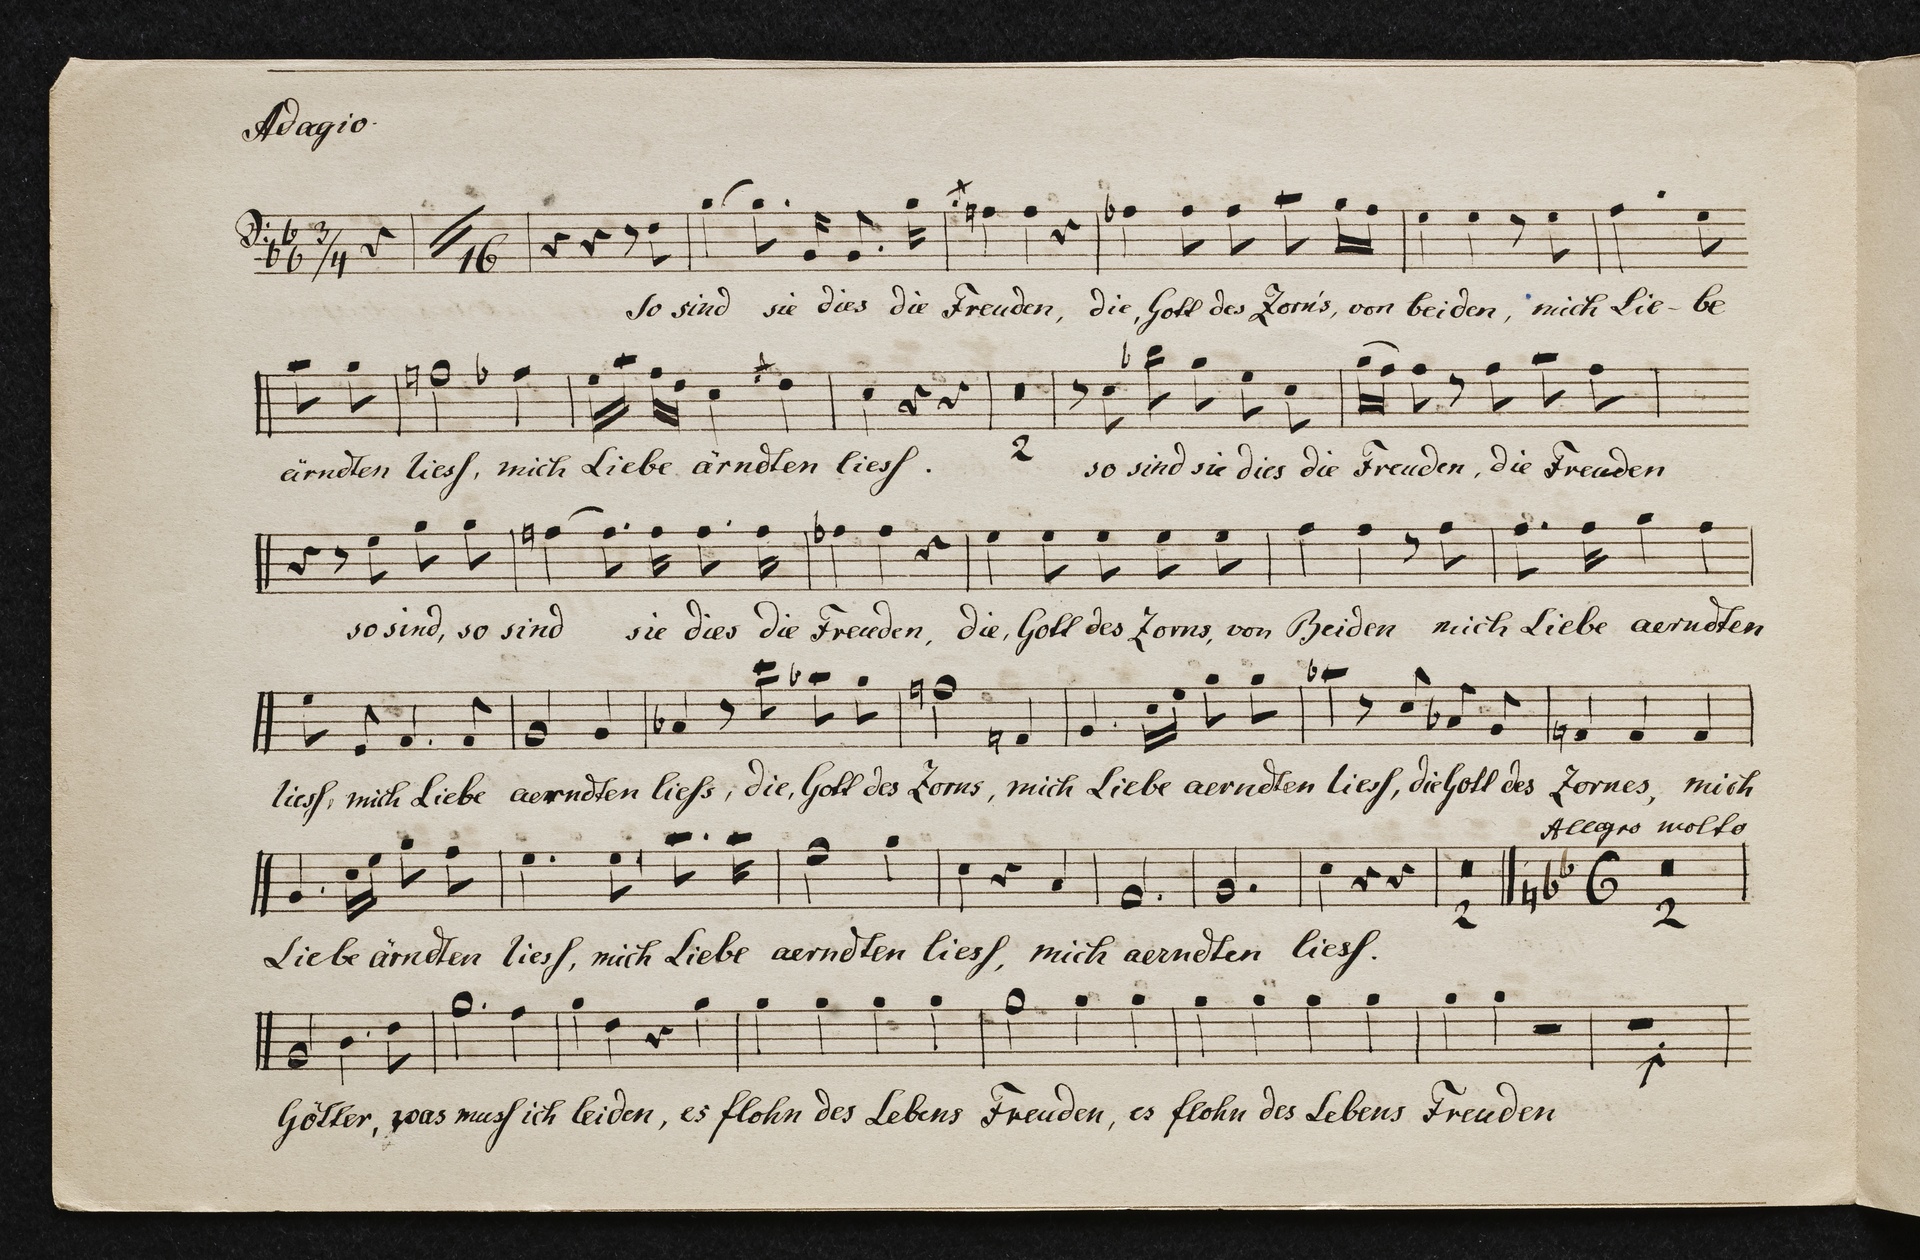 Adagio.
3/4 16
So sind sie dies die Freuden, die, Gott des Zorn's, von beiden, mich Lie - be
2
ärndten liess, mich Liebe ärndten liess. so sind sie dies die Freuden, die Freuden
so sind, so sind sie dies die Freuden, die, Gott des Zorns, von Beiden mich Liebe aerndten
liess, mich Liebe aerndten liess, die, Gott des Zorns, mich Liebe aerndten liess, die Gott des Zornes, mich
Allegro molto
2 2
Liebe ärndten liess, mich Liebe aerndten liess, mich aerndten liess.
Götter, was muss ich leiden, es flohn des Lebens Freuden, es flohn des Lebens Freuden